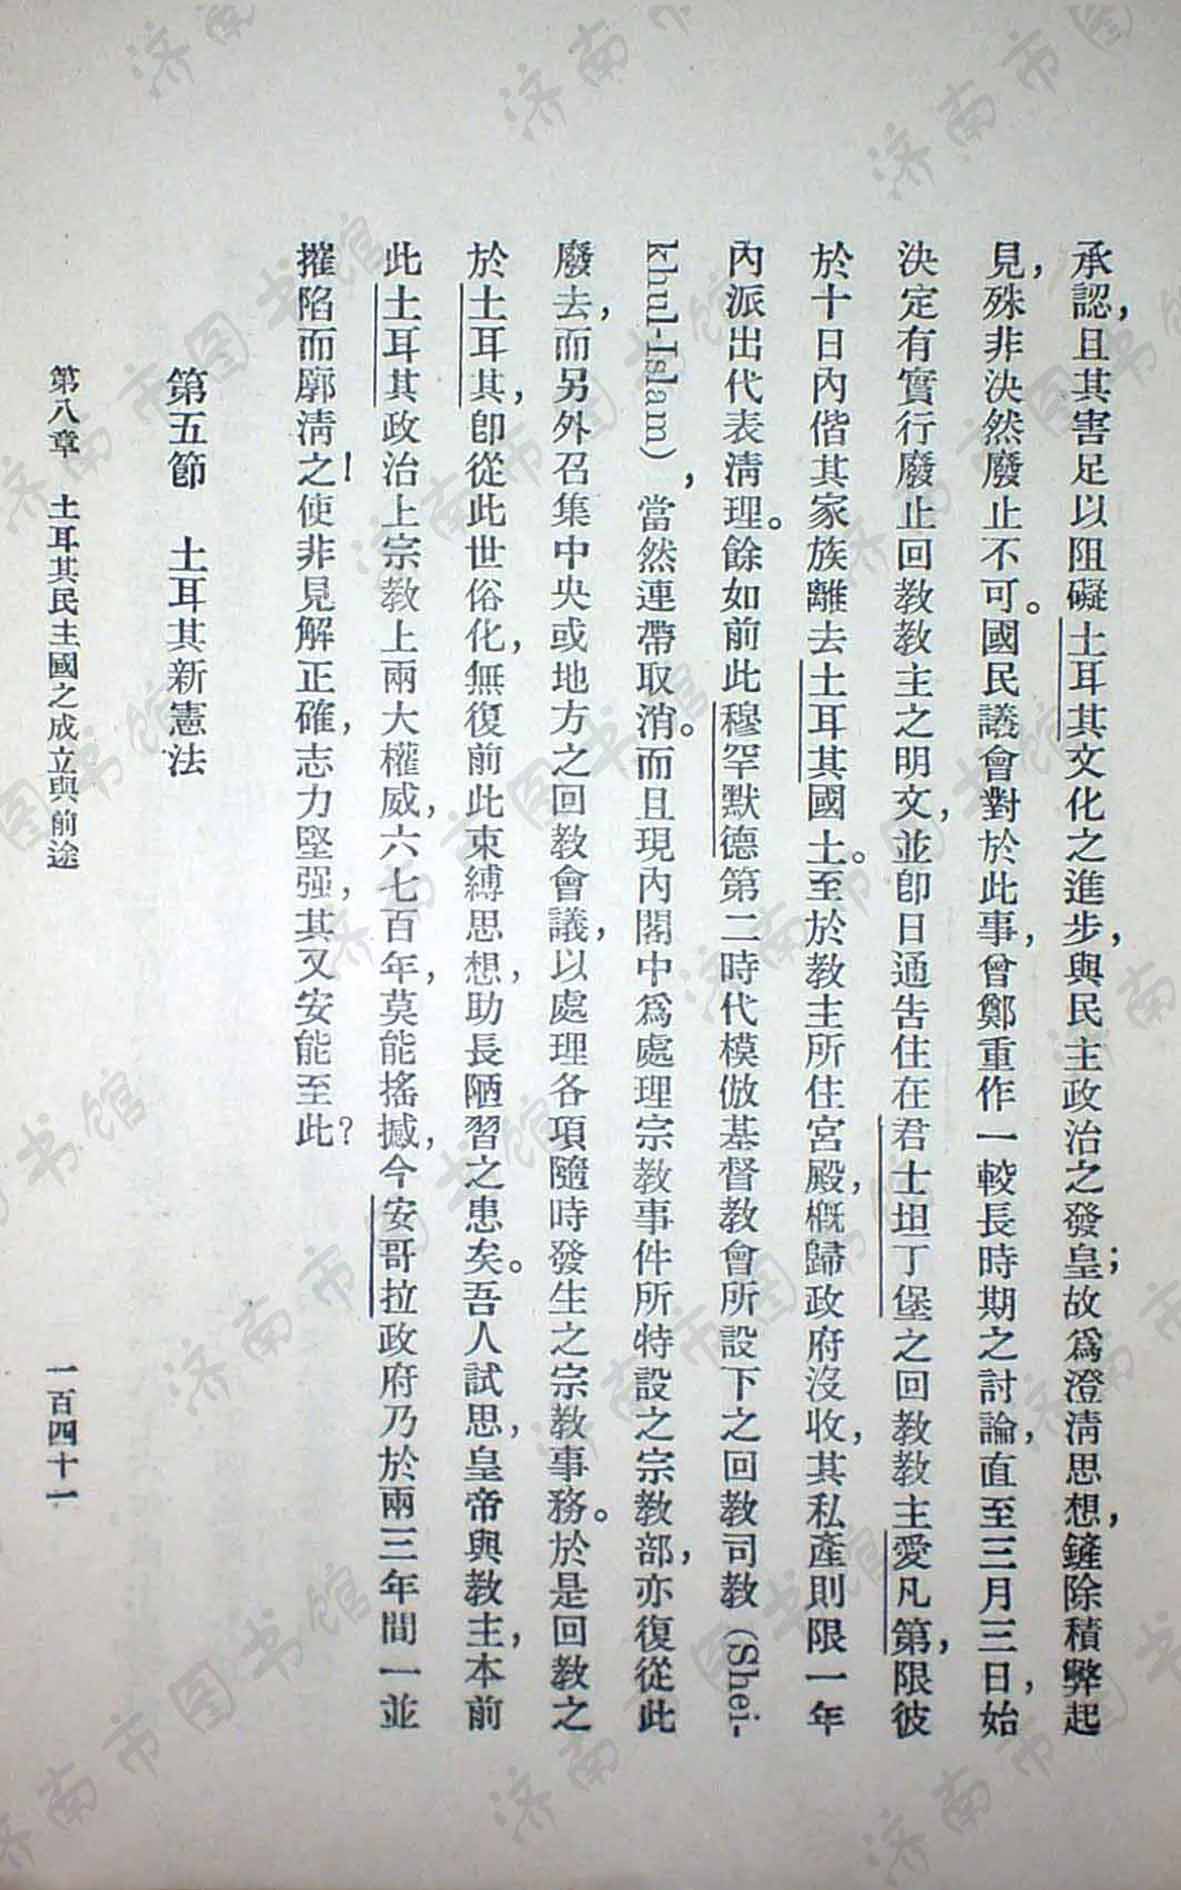 承認，且其害足以阻礙土耳其文化之進步，與民主政治之發皇；故爲澄清思想，鏟除積弊起
見，殊非決然廢止不可。國民議會對於此事，曾鄭重作一較長時期之討論，直至三月三日，始
決定有實行廢止回教教主之明文，並卽日通告住在君士坦丁堡之回教教主愛凡第，限彼
於十日內偕其家族離去土耳其國土。至於教主所住宮殿，概歸政府沒收，其私產則限一年
內派出代表清理。餘如前此穆罕默德第二時代模倣基督教會所設下之回教司教（Shei-
khul-Islam），當然連帶取消。而且現內閣中爲處理宗教事件所特設之宗教部，亦復從此
廢去，而另外召集中央或地方之回教會議，以處理各項隨時發生之宗教事務。於是回教之
於土耳其，卽從此世俗化，無復前此束縛思想，助長陋習之患矣。吾人試思，皇帝與教主，本前
此土耳其政治上宗教上兩大權威，六七百年，莫能搖撼，今安哥拉政府乃於兩三年間一並
摧陷而廓清之！使非見解正確，志力堅强，其又安能至此？
第五節　土耳其新憲法
第八章　土耳其民主國之成立與前途　一百四十一
济南市图书馆